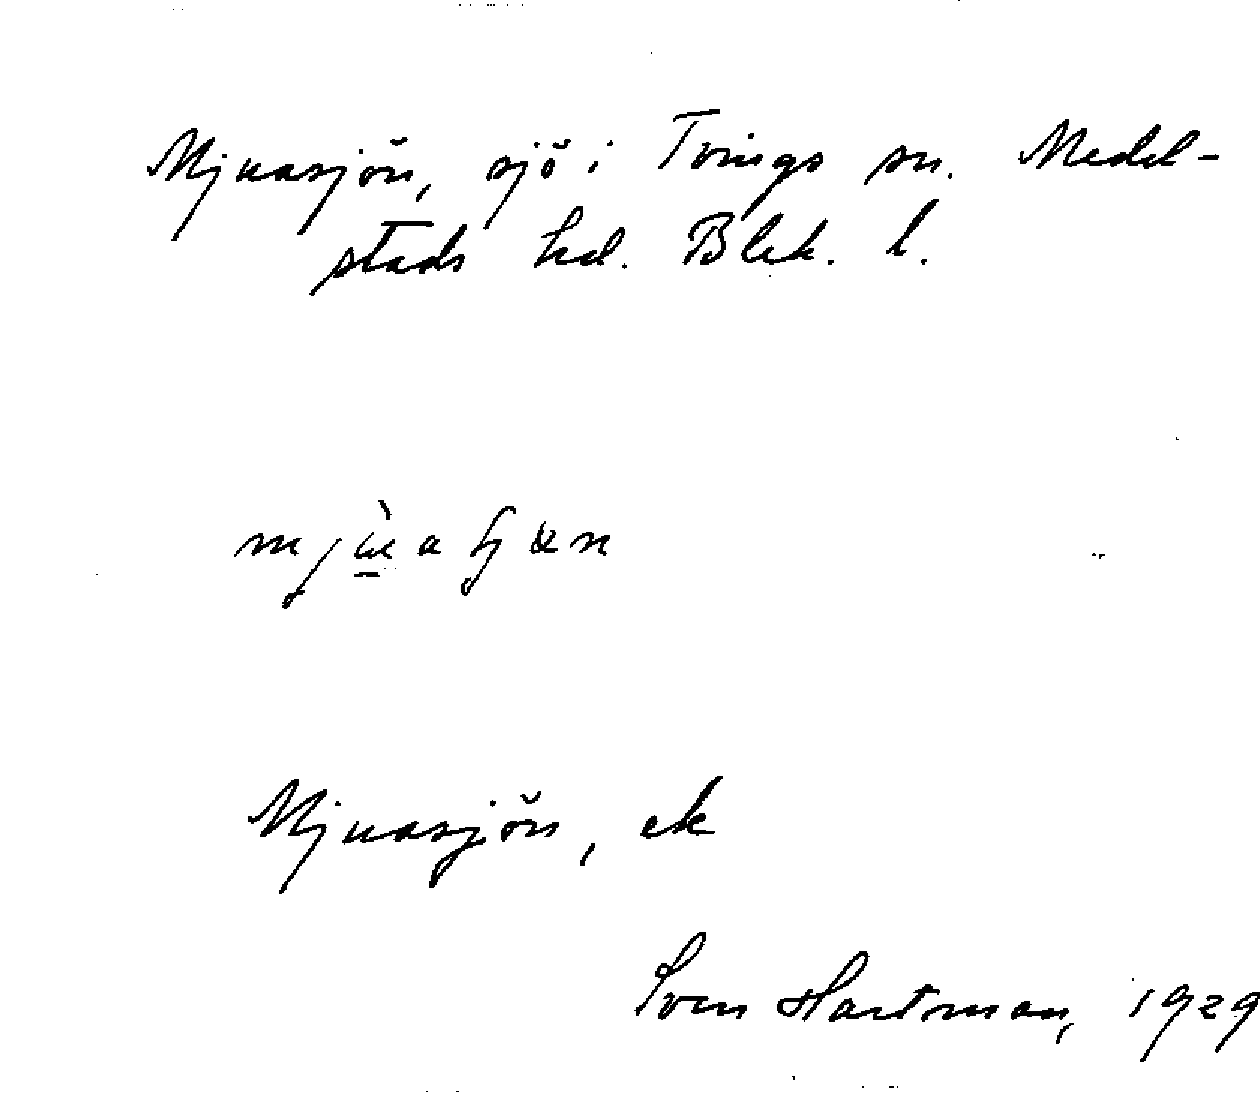 Mjuasjön, sjö i Tvings sn. Medel-
stads hd. Blek. l.
Mjuasjön, ek
Sven Hartman, 1929